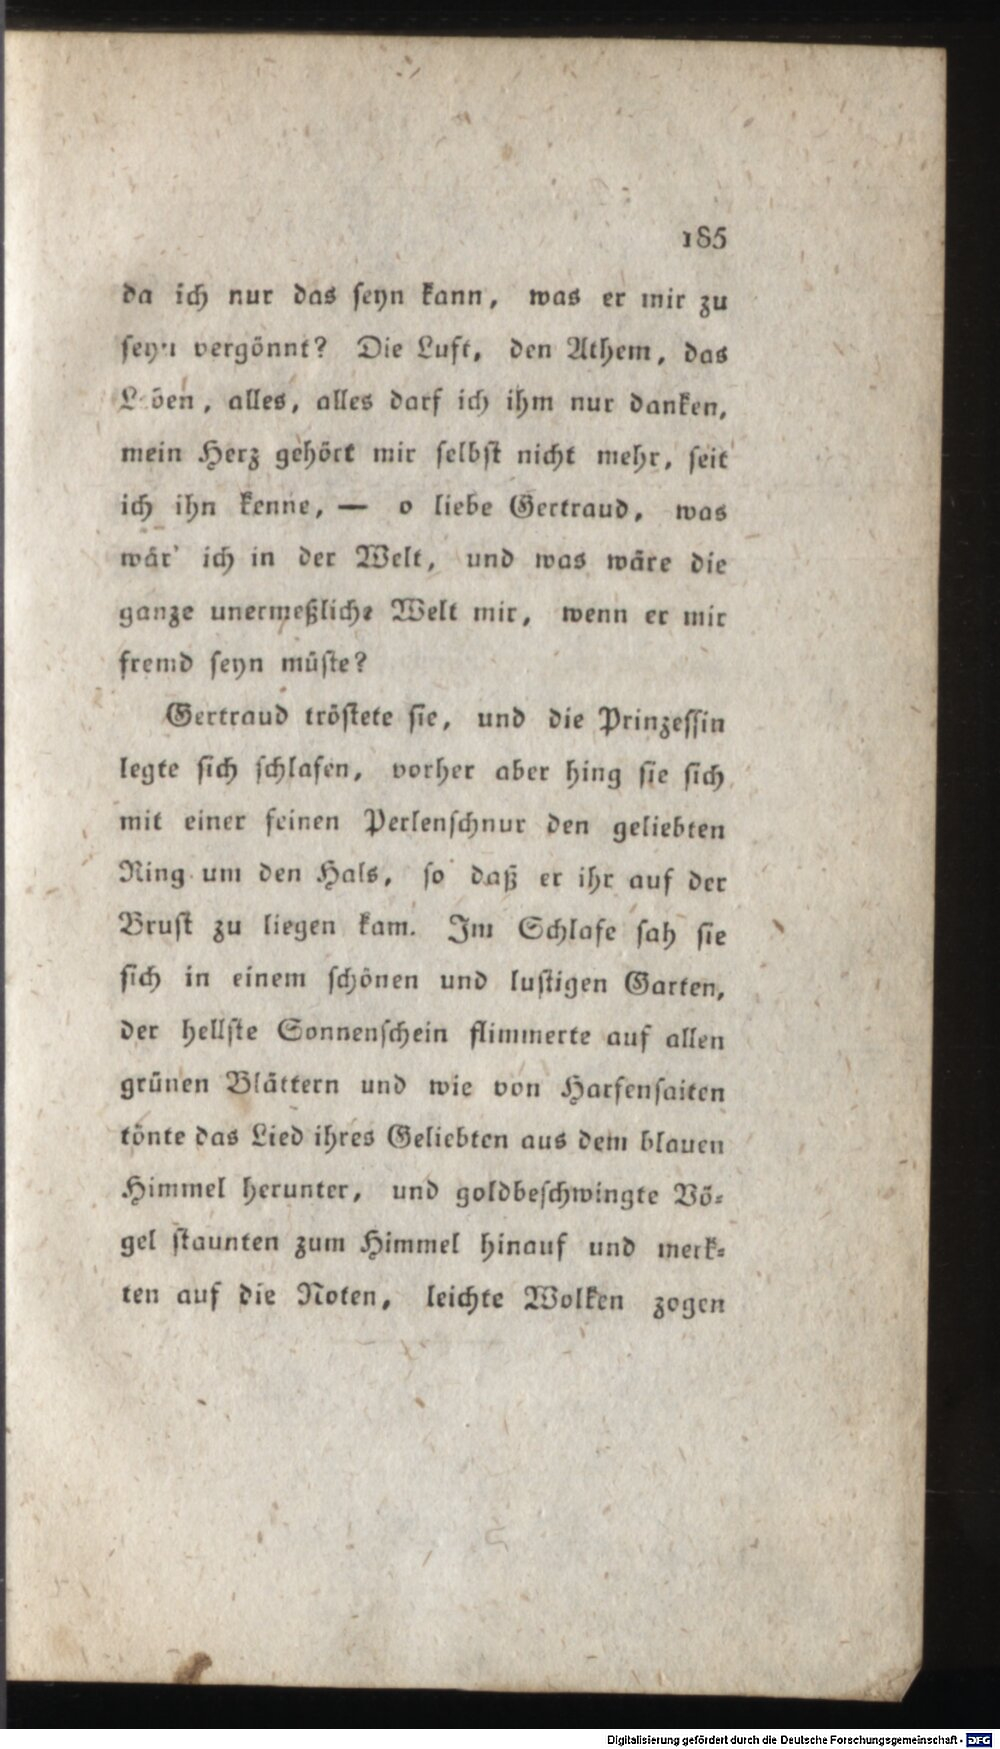 185
da ich nur das seyn kann, was er mir zu
seyn vergönnt? Die Luft, den Athem, das
Leben, alles, alles darf ich ihm nur danken,
mein Herz gehört mir selbst nicht mehr, seit
ich ihn kenne, — o liebe Gertraud, was
wär' ich in der Welt, und was wäre die
ganze unermeßliche Welt mir, wenn er mir
fremd seyn müste?
Gertraud tröstete sie, und die Prinzessin
legte sich schlafen, vorher aber hing sie sich
mit einer feinen Perlenschnur den geliebten
Ring um den Hals, so daß er ihr auf der
Brust zu liegen kam. Im Schlafe sah sie
sich in einem schönen und lustigen Garten,
der hellste Sonnenschein flimmerte auf allen
grünen Blättern und wie von Harfensaiten
tönte das Lied ihres Geliebten aus dem blauen
Himmel herunter, und goldbeschwingte Vö-
gel staunten zum Himmel hinauf und merk-
ten auf die Noten, leichte Wolken zogen
Digitalisierung gefördert durch die Deutsche Forschungsgemeinschaft - DFG